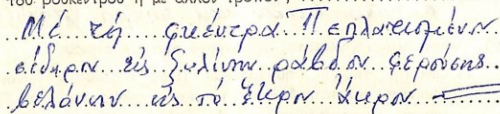 του βουκέντρου ἢ μὲ ἄλλον τρόπον;
Μέ τή φκέντρα Πεπλατισμένη
σίδηρον εἰς ξυλίνην ράβδον φερούσης
βελόνην εἰς τό ἕτερον ἄκρον